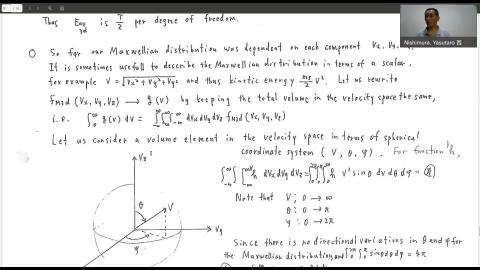 Thus Eav 3d is T/2 per degree of freedom.
Nishimura, Yasutaro 西
○ So far our Maxwellian distribution was dependent on each component Vx, Vy,
It is sometimes usefull to describe the Maxwellian distribution in terms of a scalar,
for example V = √Vx²+Vy²+Vz² and thus kinetic energy ms/2 V². Let us rewrite
fM3d (Vx, Vy, Vz) → g(V) by keeping the total volume in the velocity space the same,
i.e. ∫₀^∞ g(v) dv = ∫_{-∞}^∞ ∫_{-∞}^∞ ∫_{-∞}^∞ dVx dVy dVz fM3d (Vx, Vy, Vz)
Let us consider a volume element in the velocity space in terms of spherical
coordinate system (V, θ, φ). For function h,
Vz
∫_{-∞}^∞ ∫_{-∞}^∞ ∫_{-∞}^∞ h dVx dVy dVz = ∫₀^{2π} ∫₀^π ∫₀^∞ h V² sinθ dv dθ dφ =
θ
V
Note that V: 0 → ∞
θ: 0 → π
φ: 0 → 2π
Vy
φ
Since there is no directional variations in θ and φ for
the Maxwellian distribution, and ∫₀^{2π} ∫₀^π sinθ dθ dφ = 4π